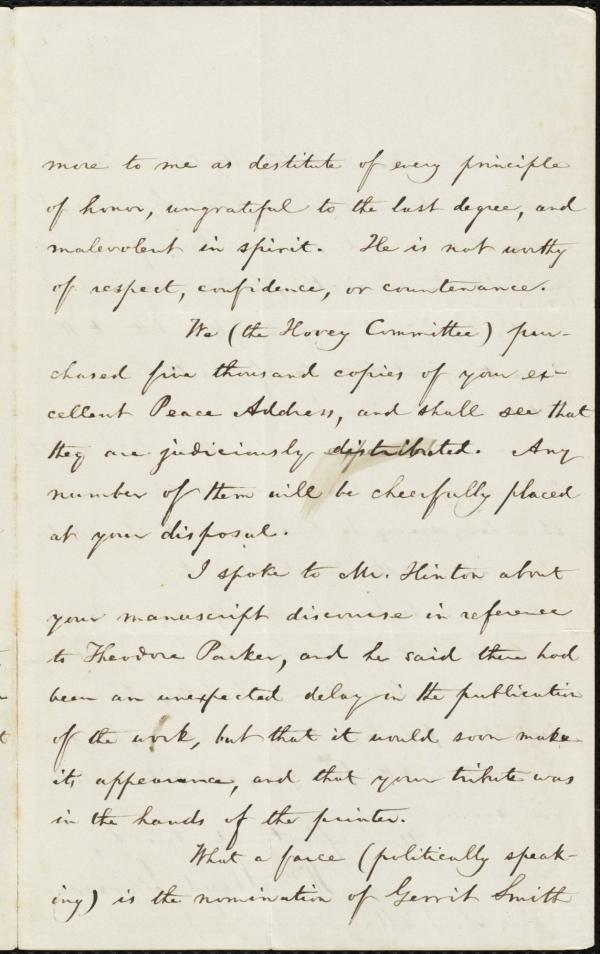 more to me as destitute of every principle
of honor, ungrateful to the last degree, and
malevolent in spirit. He is not worthy
of respect, confidence, or countenance.
We (the Hovey Committee) pur-
chased five thousand copies of your ex-
cellent Peace Address, and shall see that
they are judiciously distributed. Any
number of them will be cheerfully placed
at your disposal.
I spoke to Mr. Hinton about
your manuscript discourse in reference
to Theodore Parker, and he said there had
been an unexpected delay in the publication
of the work, but that it would soon make
its appearance, and that your tribute was
in the hands of the printer.
What a farce (politically speak-
ing) is the nomination of Gerrit Smith